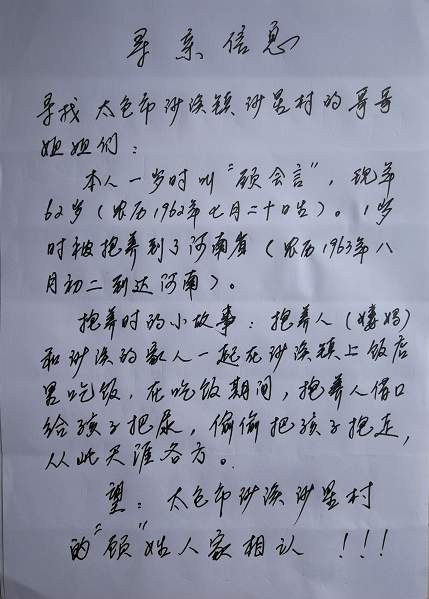 寻亲信息
寻找 太仓市沙溪镇沙星村的哥哥
姐姐们：
本人一岁时叫“顾会言”，现年
62岁（农历1962年七月二十日生）。1岁
时被抱养到了河南省（农历1963年八
月初二到达河南）。
抱养时的小故事：抱养人（婊妈）
和沙溪的家人一起在沙溪镇上饭店
里吃饭，在吃饭期间，抱养人借口
给孩子把尿，偷偷把孩子抱走，
从此天涯各方。
望：太仓市沙溪沙星村
的“顾”姓人家相认 ！！！